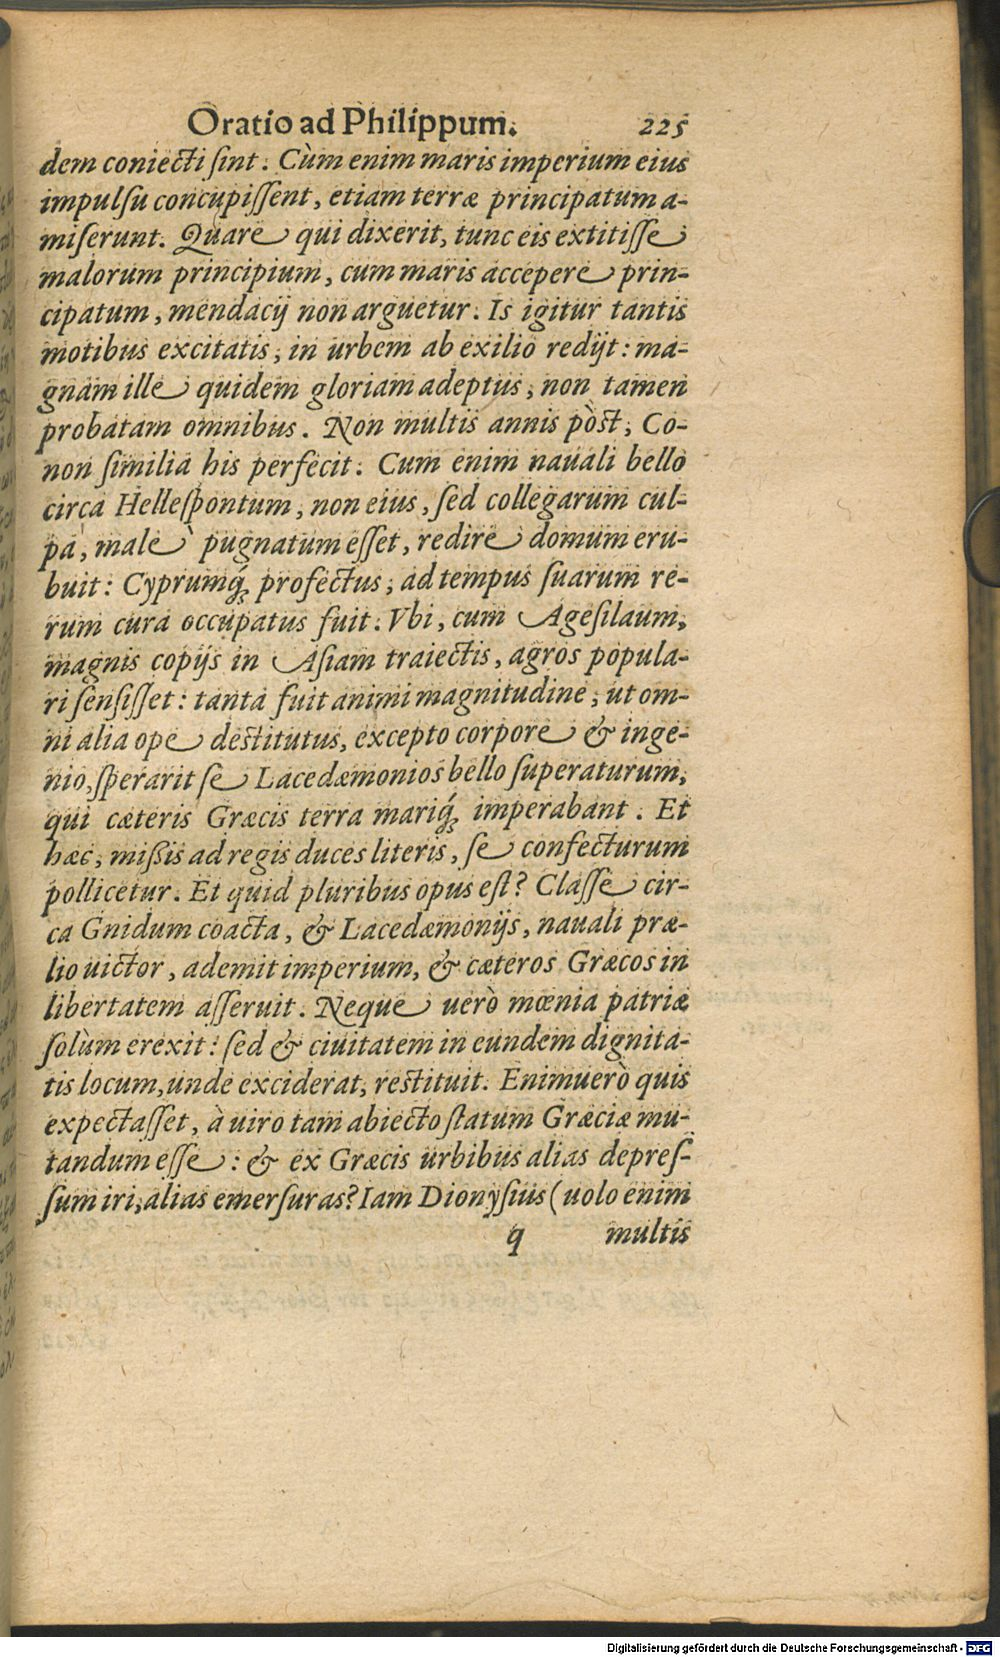 Oratio ad Philippum. 225
dem coniecti ſint. Cùm enim maris imperium eius
impulſu concupiſſent, etiam terræ principatum a-
miſerunt. Quare qui dixerit, tunc eis extitiſſe
malorum principium, cum maris accepere prin-
cipatum, mendacij non arguetur. Is igitur tantis
motibus excitatis, in urbem ab exilio redijt: ma-
gnam ille quidem gloriam adeptus, non tamen
probatam omnibus. Non multis annis pòst, Co-
non ſimilia his perfecit. Cum enim nauali bello
circa Helleſpontum, non eius, ſed collegarum cul-
pa, male pugnatum eſſet, redire domum eru-
buit: Cyprumq́ꝫ profectus, ad tempus ſuarum re-
rum cura occupatus fuit. Vbi, cum Ageſilaum,
magnis copijs in Aſiam traiectis, agros popula-
ri ſenſiſſet: tanta fuit animi magnitudine, ut om-
ni alia ope deſtitutus, excepto corpore & inge-
nio, ſperarit ſe Lacedæmonios bello ſuperaturum,
qui cæteris Græcis terra mariq́ꝫ imperabant. Et
hæc, mißis ad regis duces literis, ſe confecturum
pollicetur. Et quid pluribus opus eſt? Claſſe cir-
ca Gnidum coacta, & Lacedæmonijs, nauali præ-
lio uictor, ademit imperium, & cæteros Græcos in
libertatem aſſeruit. Neque uerò mœnia patriæ
ſolùm erexit: ſed & ciuitatem in eundem dignita-
tis locum, unde exciderat, reſtituit. Enimuerò quis
expectaſſet, à uiro tam abiecto ſtatum Græciæ mu-
tandum eſſe: & ex Græcis urbibus alias depreſ-
ſum iri, alias emerſuras? Iam Dionyſius (uolo enim
q multis
Digitalisierung gefördert durch die Deutsche Forschungsgemeinschaft - DFG